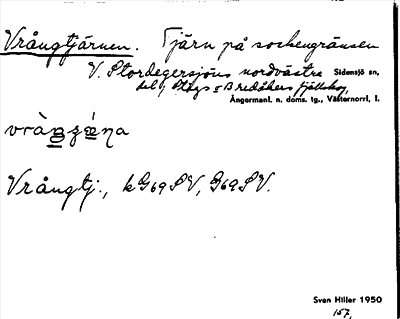 Vrångtjärnen. Tjärn på sockengränsen
V. Stordegersjöns nordvästra Sidensjö sn,
del, Stags o Bredåkers fjällskog,
Ångermanl. n. doms. tg., Västernorrl. l.
Vrångtj., kG69SV, G69SV.
Sven Hiller 1950
157.